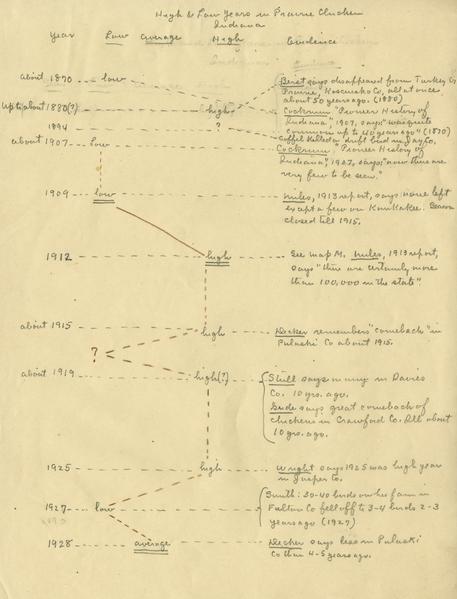 High & Low Years in Prairie Chicken
Indiana
Year Low Average High Evidence
about 1870 low
Berst says disappeared from Turkey Cr
Prairie, Kosciusko Co, all at once
about 50 years ago. (1880)
Up to about 1880(?) high
Cockrum "Pioneer History of
Indiana", 1907, says "was quite
common up to 40 years ago" (1870)
1894 ?
killed a bird in Jay Co.
about 1907 low
Cockrum, "Pioneer History of
Indiana", 1907, says, "now there are
very few to be seen."
1909 low
Miles, 1913 report, says none left
except a few on Kankakee. Season
closed till 1915.
1912 high
See map M. Miles, 1913 report,
says "there are certainly more
than 100,000 in the state"
about 1915 high
Decker remembers "comeback" in
Pulaski Co about 1915.
?
about 1919 high(?)
Stull says many in Davies
Co. 10 yrs. ago.
Gude says great comeback of
chickens in Crawford Co. Ill about
10 yrs. ago.
1925 high
Wright says 1925 was high year
in Jasper Co.
1927 low
Smith: 30-40 birds on his farm in
Fulton Co fell off to 3-4 birds 2-3
years ago (1927)
1928 average
Decker says less in Pulaski
Co than 4-5 years ago.